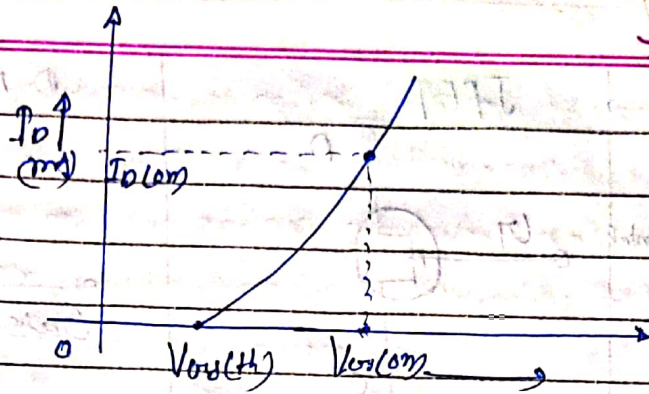 I_D ↑
(mA)
I_D(on)
0
V_GS(th)
V_GS(on)